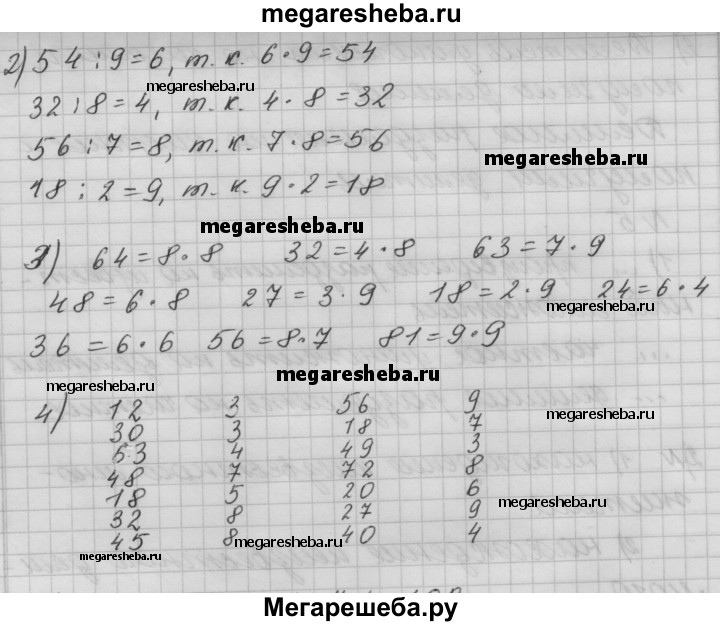 megaresheba.ru
2) 54 : 9 = 6, т. к. 6 · 9 = 54
megaresheba.ru
32 : 8 = 4, т. к. 4 · 8 = 32
56 : 7 = 8, т. к. 7 · 8 = 56
megaresheba.ru
18 : 2 = 9, т. к. 9 · 2 = 18
megaresheba.ru
3) 64 = 8 · 8 32 = 4 · 8 63 = 7 · 9
48 = 6 · 8 27 = 3 · 9 18 = 2 · 9 24 = 6 · 4
megaresheba.ru
36 = 6 · 6 56 = 8 · 7 81 = 9 · 9
megaresheba.ru
megaresheba.ru
4) 12 3 56 9
megaresheba.ru
30 3 18 7
63 4 49 3
48 7 72 8
18 5 20 6
megaresheba.ru
32 8 27 9
45 8 40 4
megaresheba.ru
megaresheba.ru
Мегарешеба.ру